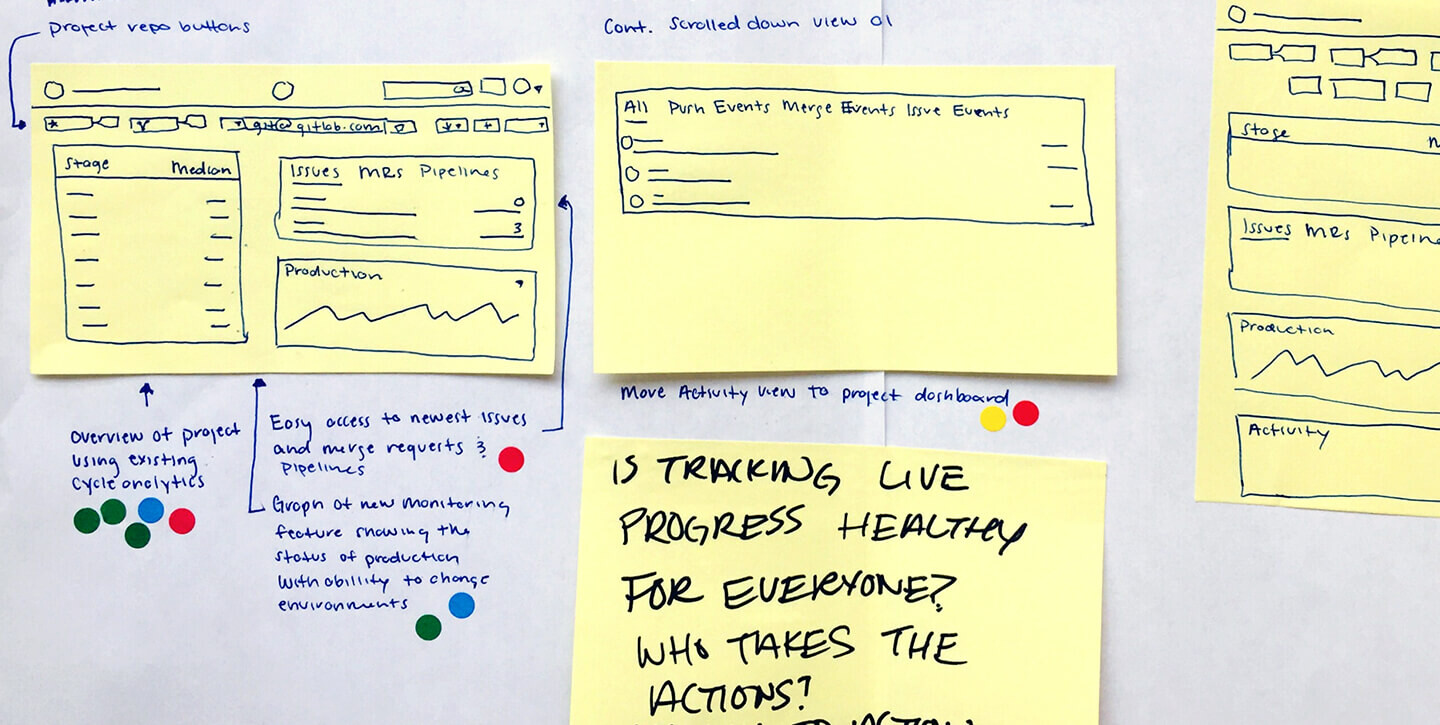 project repo buttons
git@gitlab.com
Stage Median
Issues MRs Pipelines
0
3
Production
Overview of project
using existing
cycle analytics
Easy access to newest issues
and merge requests &
pipelines
Graph of new monitoring
feature showing the
status of production
with ability to change
environments
Cont. Scrolled down view 01
All Push Events Merge Events Issue Events
Move Activity view to project dashboard
IS TRACKING LIVE
PROGRESS HEALTHY
FOR EVERYONE?
WHO TAKES THE
ACTIONS?
Stage
Issues MRs Pipeline
Production
Activity